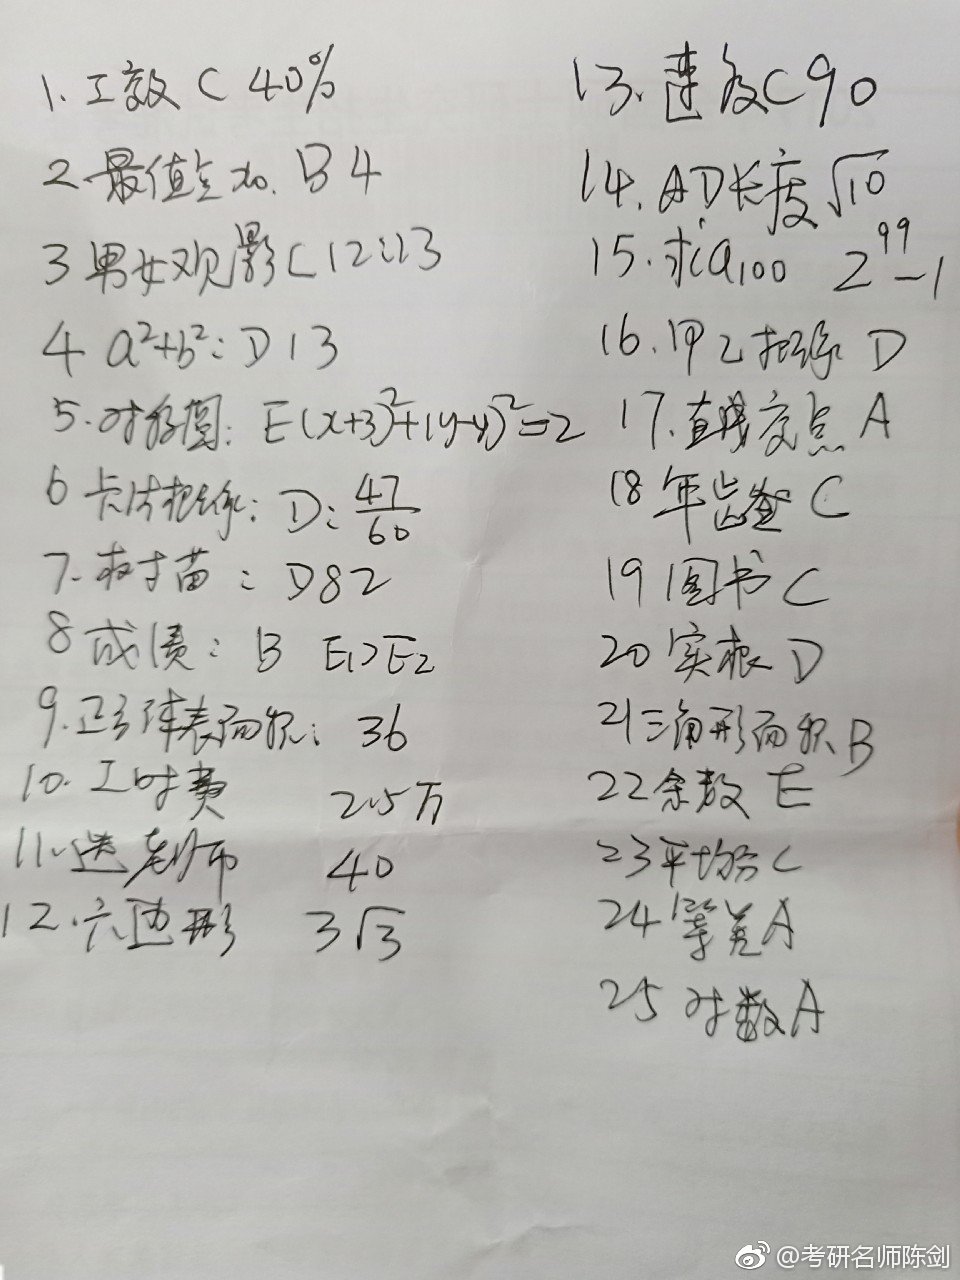 1. 工效 C 40%
2. 最值呈 x₀. B 4
3 男女观影 C 12:13
4 a²+b²: D 13
5. 对称圆: E (x+3)²+(y-4)²=2
6 卡片概率: D: 47/60
7. 树苗: D 82
8 成绩: B E₁>E₂
9. 正方体表面积: 36
10. 工时费 2.5万
11. 选老师 40
12. 六边形 3√3
13. 速度 C 90
14. AD长度 √10
15. 求a₁₀₀ 2⁹⁹-1
16. 甲乙概率 D
17. 直线交点 A
18 年龄 C
19 图书 C
20 实根 D
21 三角形面积 B
22 余数 E
23 平均分 C
24 等差 A
25 对数 A
@考研名师陈剑